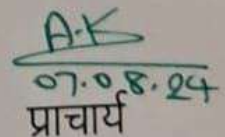 A.K
07.08.24
प्राचार्य